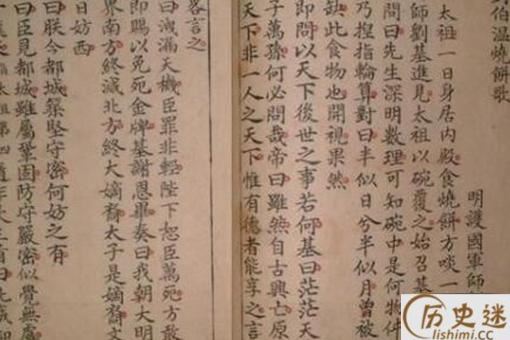 伯温燒餅歌
明護國軍師
太祖一日身居内殿食燒餅方啖一
師劉基進見太祖以碗覆之始召基
問曰先生深明數理可知碗中是何物件
乃揑指輪算對曰半似日兮半似月曾被
缺此食物也開視果然
即問以天下後世之事若何基曰茫茫天
子萬孫何必問哉帝曰雖然自古興亡原
天下非一人之天下惟有德者能享之言
畧言之
曰洩漏天機臣罪非輕陛下恕臣萬死方敢
即賜以免死金牌基謝恩畢奏曰我朝大明
界南方終滅北方終大嫡裔太子是嫡裔文
日妨西
曰朕今都城築堅守密何妨之有
曰臣見都城雖屬鞏固防守嚴密似覺無處
历史迷
lishimi.cc